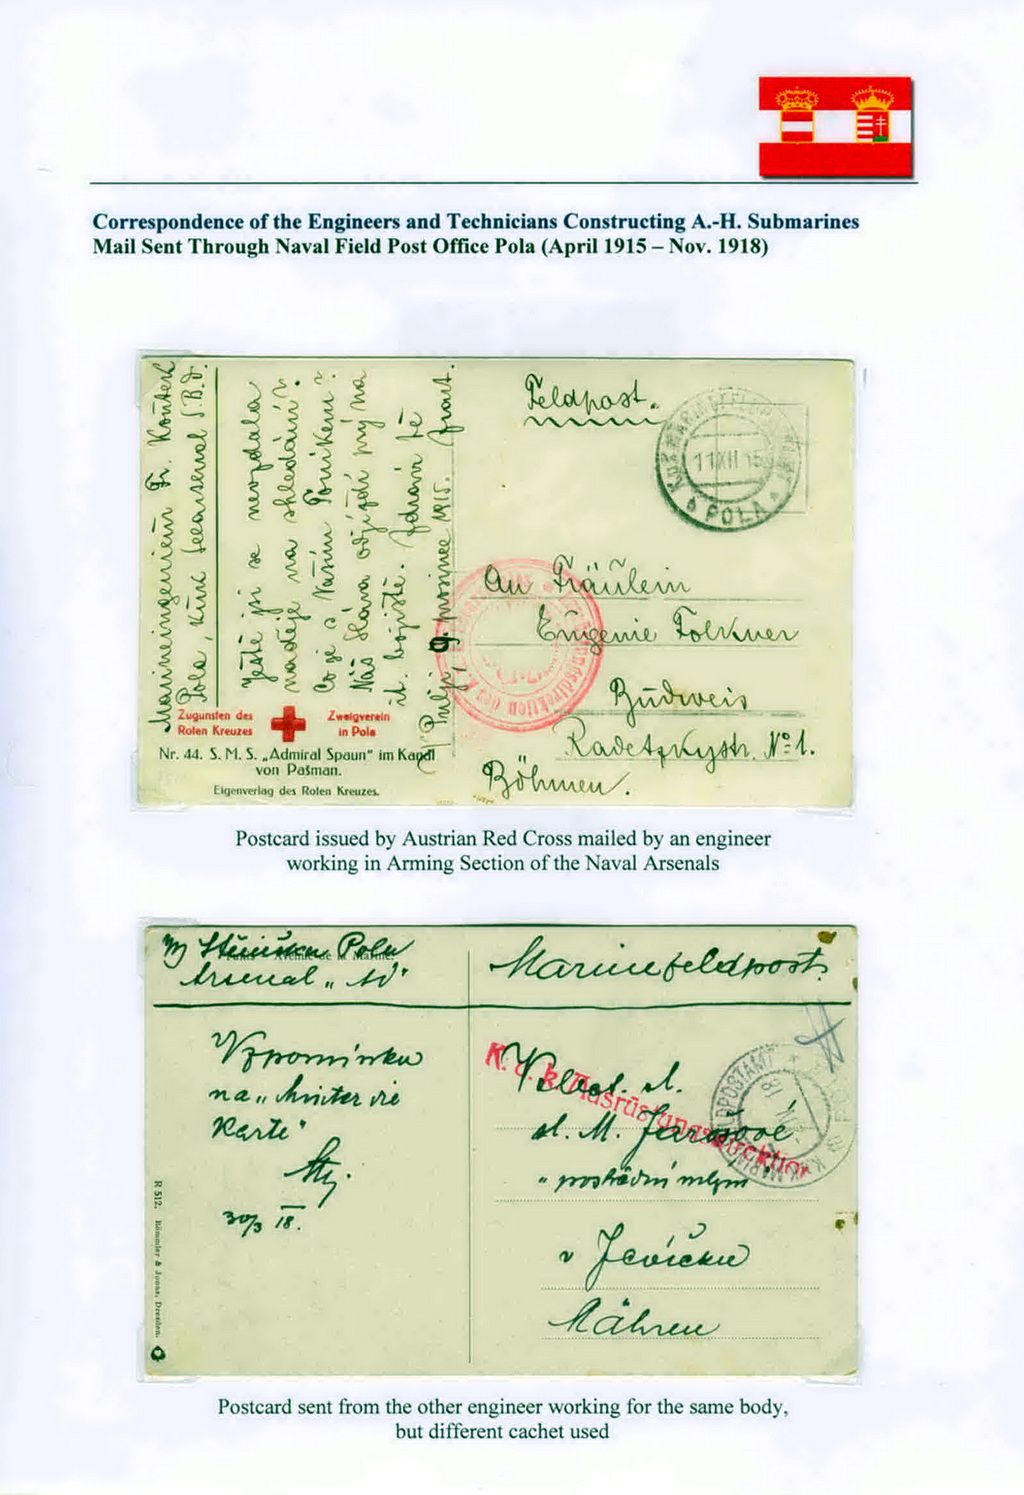 Correspondence of the Engineers and Technicians Constructing A.-H. Submarines
Mail Sent Through Naval Field Post Office Pola (April 1915 – Nov. 1918)
Marineingenieur Fr.
Pola, K.u.K. Seearsenal
Ještě jsi se nevzdala
naděje na shledání?
Co je s Vaším
Náš Sláva odjíždí prý na
it. bojiště. Zdraví tě
Pulj, 9. prosince 1915.
Zugunsten des
Roten Kreuzes
Zweigverein
in Pola
Nr. 44. S. M. S. „Admiral Spaun" im Kanal
von Pašman.
Eigenverlag des Roten Kreuzes.
Feldpost.
11 XII 15
POLA
An Fräulein
Eugenie Folkner
Budweis
Radetzkystr. No 1.
Böhmen.
Postcard issued by Austrian Red Cross mailed by an engineer
working in Arming Section of the Naval Arsenals
Pola
Arsenal
Marinefeldpost
Vzpomínka
na
Karte"
30/3 18.
K. u. k. Ausrüstungsdirektion
sl. M. Jarošové
v Jevíčku
Mähren
R 512. Römmler & Jonas, Dresden.
Postcard sent from the other engineer working for the same body,
but different cachet used